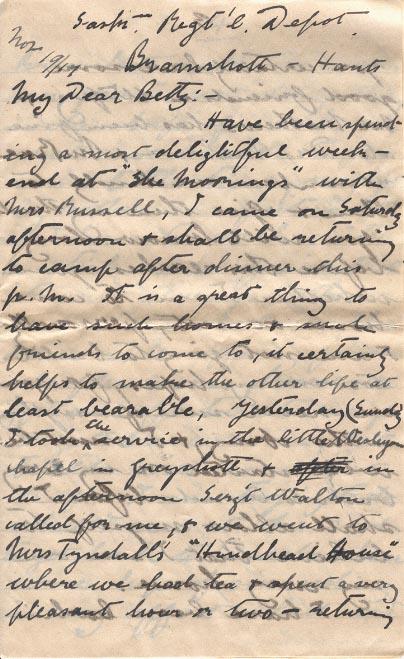 Sask. Regt'l. Depot.
Nov 19/17
Bramshott Hants
My Dear Betty:-
Have been spend-
ing a most delightful week-
end at "The Moorings" with
Mrs Russell, I came on Saturday
afternoon & shall be returning
to camp after dinner this
p.m. It is a great thing to
have such homes & such
friends to come to, it certainly
helps to make the other life at
least bearable, Yesterday (Sunday)
I took the service in the little Wesleyan
chapel in Greyshott & after in
the afternoon Serg't Walton
called for me, & we went to
Mrs Tyndall's "Hindhead House"
where we had tea & spent a very
pleasant hour or two - returning